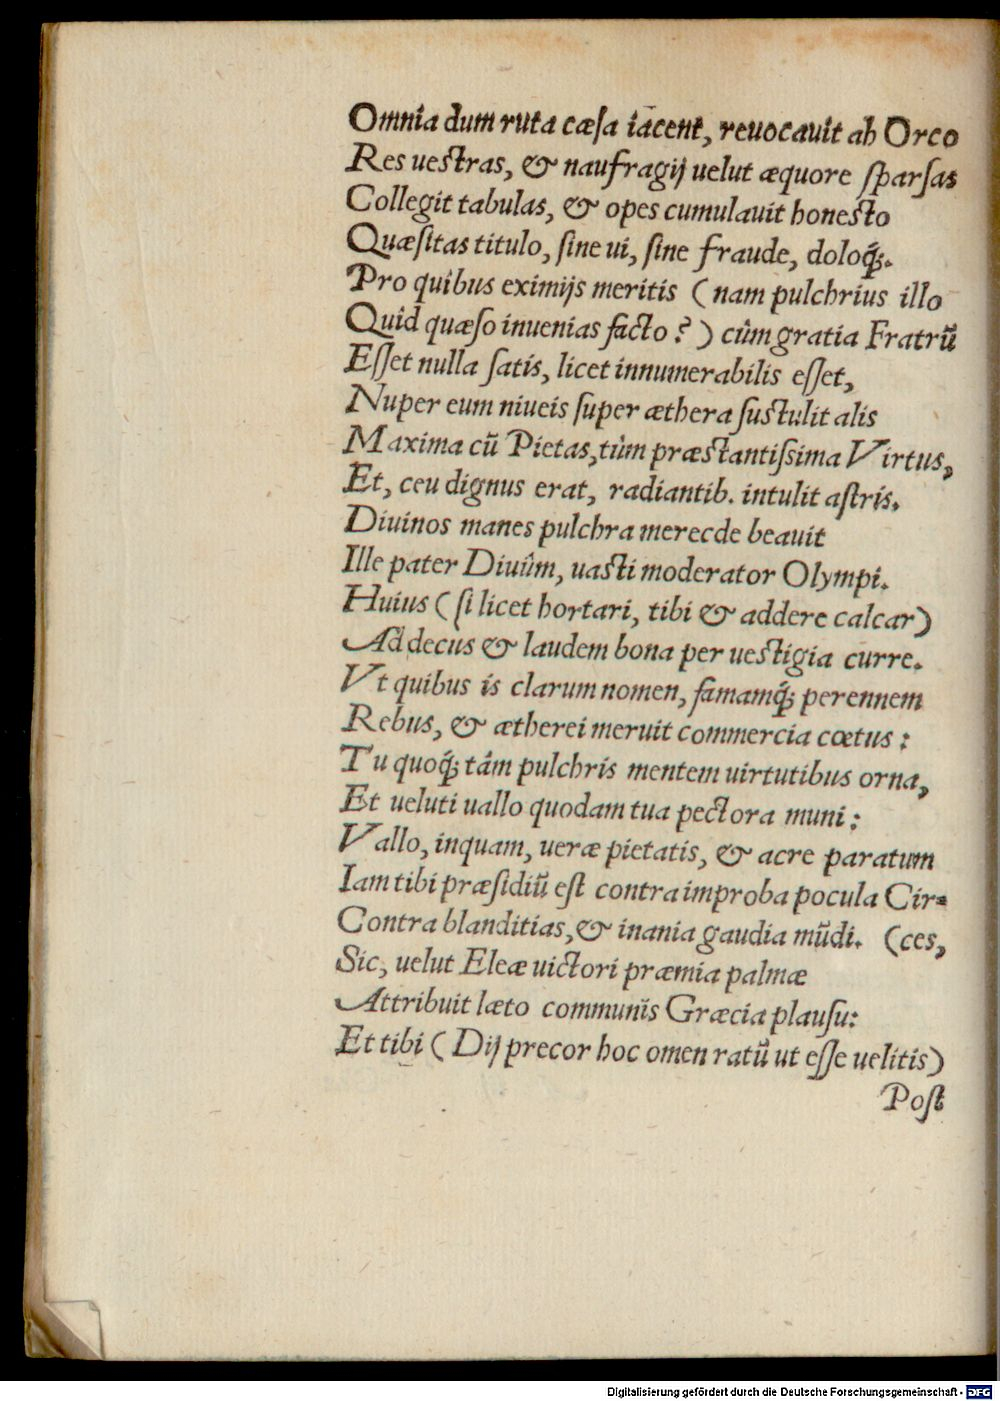 Omnia dum ruta cæſa iacent, reuocauit ab Orco
Res ueſtras, & naufragij uelut æquore ſparſas
Collegit tabulas, & opes cumulauit honeſto
Quæſitas titulo, ſine ui, ſine fraude, doloq́;.
Pro quibus eximijs meritis (nam pulchrius illo
Quid quæſo inuenias facto?) cùm gratia Fratrũ
Eſſet nulla ſatis, licet innumerabilis eſſet,
Nuper eum niueis ſuper æthera ſuſtulit alis
Maxima cũ Pietas, tùm præſtantiſsima Virtus,
Et, ceu dignus erat, radiantib. intulit aſtris.
Diuinos manes pulchra merecde beauit
Ille pater Diuûm, uaſti moderator Olympi.
Huius (ſi licet hortari, tibi & addere calcar)
Ad decus & laudem bona per ueſtigia curre.
Vt quibus is clarum nomen, famamq́; perennem
Rebus, & ætherei meruit commercia cœtus:
Tu quoq́; tâm pulchris mentem uirtutibus orna,
Et ueluti uallo quodam tua pectora muni:
Vallo, inquam, ueræ pietatis, & acre paratum
Iam tibi præſidiũ eſt contra improba pocula Cir=
Contra blanditias, & inania gaudia mũdi. (ces,
Sic, uelut Eleæ uictori præmia palmæ
Attribuit læto communis Græcia plauſu:
Et tibi (Dij precor hoc omen ratũ ut eſſe uelitis)
Poſt
Digitalisierung gefördert durch die Deutsche Forschungsgemeinschaft - DFG